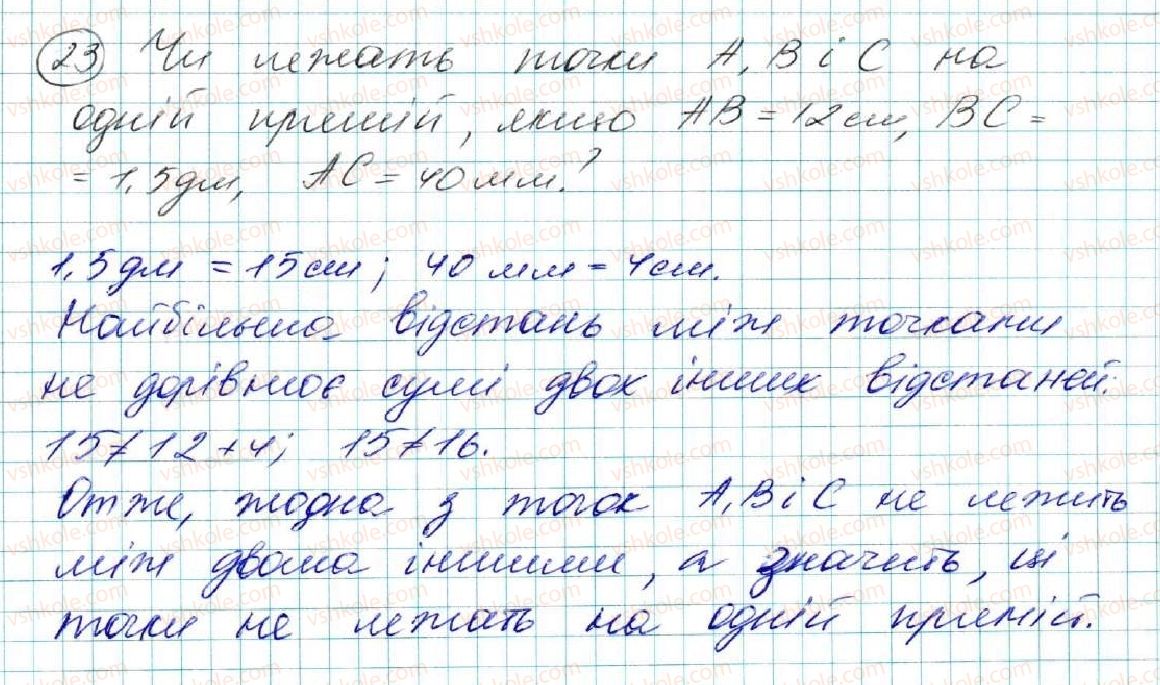 23 Чи лежать точки А, В і С на
одній прямій, якщо АВ = 12 см, ВС =
= 1,5 дм, АС = 40 мм?
1,5 дм = 15 см; 40 мм = 4 см.
Найбільша відстань між точками
не дорівнює сумі двох інших відстаней:
15 ≠ 12 + 4; 15 ≠ 16.
Отже, жодна з точок А, В і С не лежить
між двома іншими, а значить, ці
точки не лежать на одній прямій.